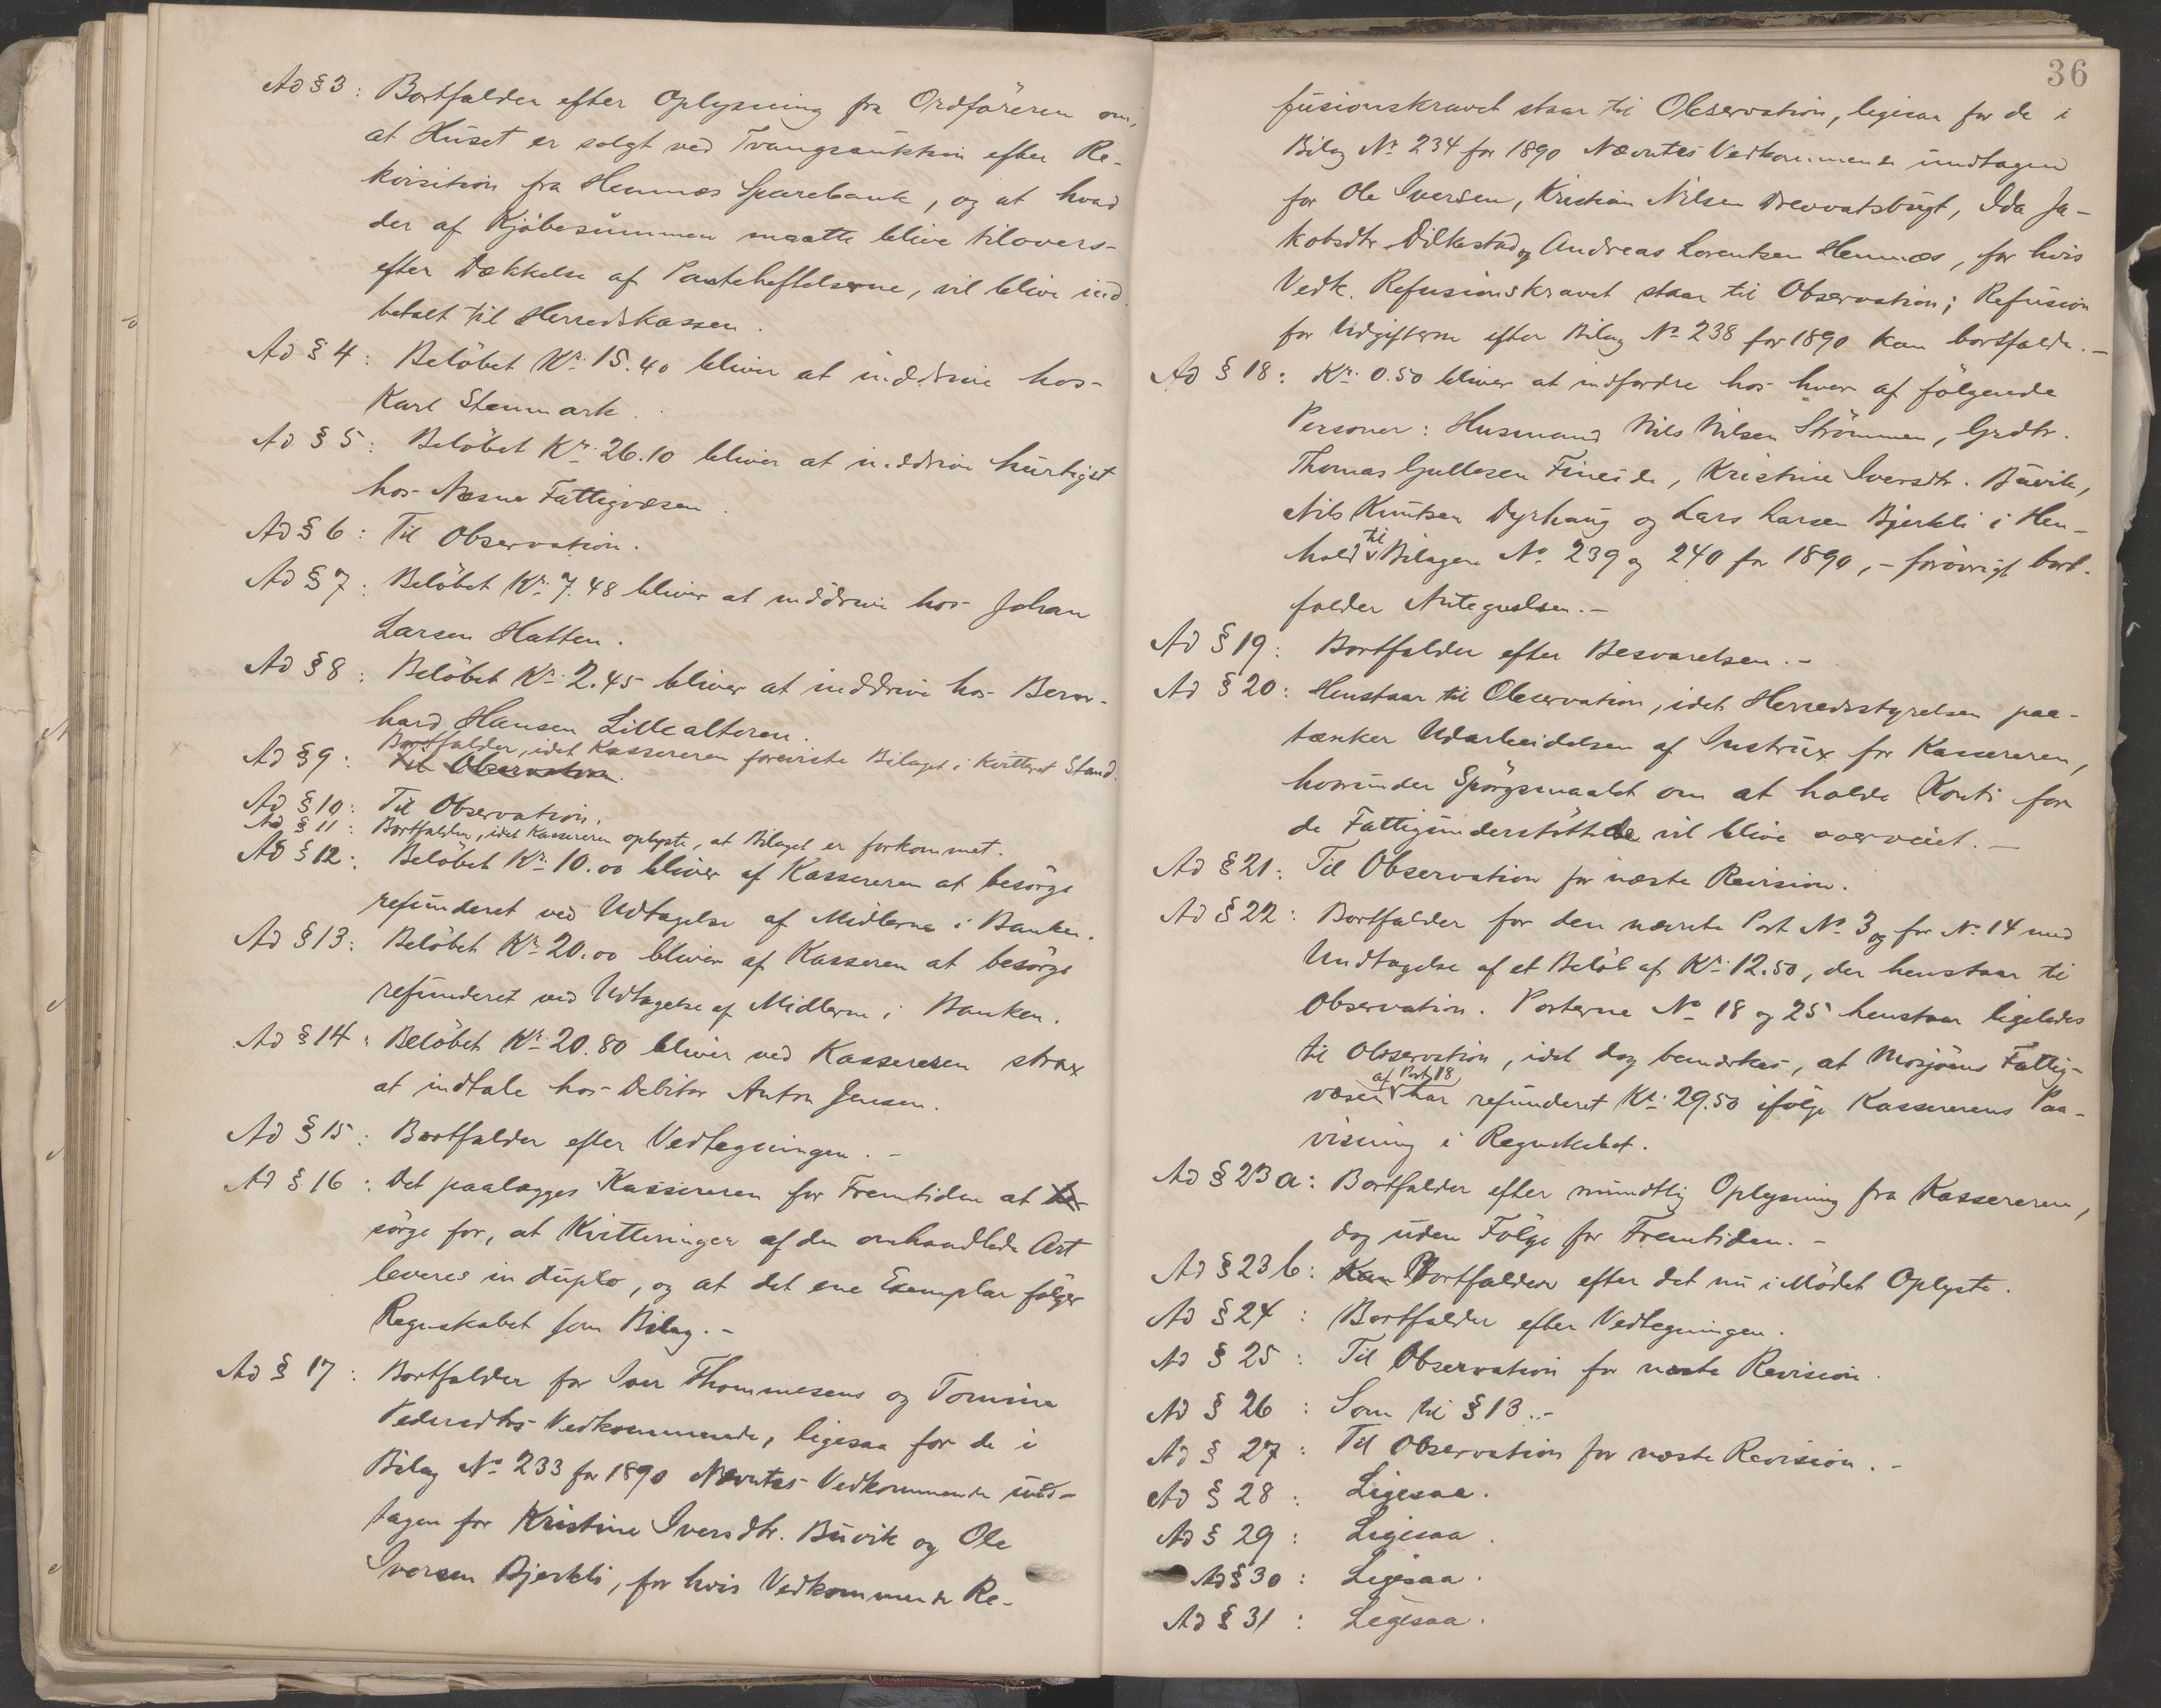 Ad § 3: Bortfalder efter Oplysning fra Ordföreren om,
at Huset er solgt ved Tvangsauktion efter Re-
kvisition fra Hemnæs Sparebank, og at hvad
der af Kjöbesummen maatte blive tilovers
efter Dækkelse af Panteheftelserne, vil blive ind-
betalt til Herredskassen.
Ad § 4: Belöbet Kr. 15.40 bliver at inddrive hos
Karl Stenmark.
Ad § 5: Belöbet Kr. 26.10 bliver at inddrive hurtigst
hos Næsne Fattigvæsen.
Ad § 6: Til Observation.
Ad § 7: Belöbet Kr. 7.48 bliver at inddrive hos Johan
Larsen Hatten.
Ad § 8: Belöbet Kr. 2.45 bliver at inddrive hos Bern-
hard Hansen Lillealteren.
Bortfalder, idet Kassereren foreviste Bilaget i kvitteret Stand.
Ad § 9: Til Observation.
Ad § 10: Til Observation.
Ad § 11: Bortfalder, idet Kassereren oplyste, at Bilaget er forkommet.
Ad § 12: Belöbet Kr. 10.00 bliver af Kassereren at besörge
refunderet ved Udtagelse af Midlerne i Banken.
Ad § 13: Belöbet Kr. 20.00 bliver af Kasseren at besörge
refunderet ved Udtagelse af Midlerne i Banken.
Ad § 14: Belöbet Kr. 20.80 bliver ved Kassereren strax
at indtale hos Debitor Anton Jensen.
Ad § 15: Bortfalder efter Vedtegningen. -
Ad § 16: Det paalægges Kassereren for Fremtiden at
sörge for, at Kvitteringer af den omhandlede Art
leveres in duplo, og at det ene Exemplar fölger
Regnskabet som Bilag. -
Ad § 17: Bortfalder for Iver Thommesens og Tomine
Pedersdtrs Vedkommende, ligesaa for de i
Bilag No 233 for 1890 Nævntes Vedkommende und-
tagen for Kristine Iversdtr. Buvik og Ole
Iversen Bjerkli, for hvis Vedkommende Re-
36
fusionskravet staar til Observation, ligesaa for de i
Bilag No 234 for 1890 Nævntes Vedkommende undtagen
for Ole Iversen, Kristian Nilsen Drevvatsbugt, Ida Ja-
kobsdtr Dilkestad og Andreas Lorentsen Hemnæs, for hvis
Vedk. Refusionskravet staar til Observation; Refusion
for Udgifterne efter Bilag No 238 for 1890 kan bortfalde. -
Ad § 18: Kr. 0.50 bliver at indfordre hos hver af fölgende
Personer: Husmand Nils Nilsen Strömmen, Grdbr.
Thomas Gullesen Fineide, Kristine Iversdtr. Buvik,
Nils Knutsen Dyrhaug og Lars Larsen Bjerkli i Hen-
hold til Bilagene No 239 og 240 for 1890, - forövrigt bort-
falder Antegnelsen. -
Ad § 19: Bortfalder efter Besvarelsen. -
Ad § 20: Henstaar til Observation, idet Herredsstyrelsen paa-
tænker Udarbeidelsen af Instrux for Kassereren,
hvorunder Spörgsmaalet om at holde Konti for
de Fattigunderstöttede vil blive overveiet. -
Ad § 21: Til Observation for næste Revision.
Ad § 22: Bortfalder for den nævnte Post No 3 og for No 14 med
Undtagelse af et Belöb af Kr. 12.50, der henstaar til
Observation. Posterne No 18 og 25 henstaar ligeledes
til Observation, idet dog bemærkes, at Mosjöens Fattig-
væsen af Post 18 har refunderet Kr. 29.50 ifölge Kassererens Paa-
visning i Regnskabet.
Ad § 23 a: Bortfalder efter mundtlig Oplysning fra Kassereren,
dog uden Fölge for Fremtiden. -
Ad § 23 b: Kan Bortfalder efter det nu i Mödet Oplyste.
Ad § 24: Bortfalder efter Vedtegningen.
Ad § 25: Til Observation for næste Revision.
Ad § 26: Som til § 13. -
Ad § 27: Til Observation for næste Revision. -
Ad § 28: Ligesaa.
Ad § 29: Ligesaa.
Ad § 30: Ligesaa.
Ad § 31: Ligesaa.